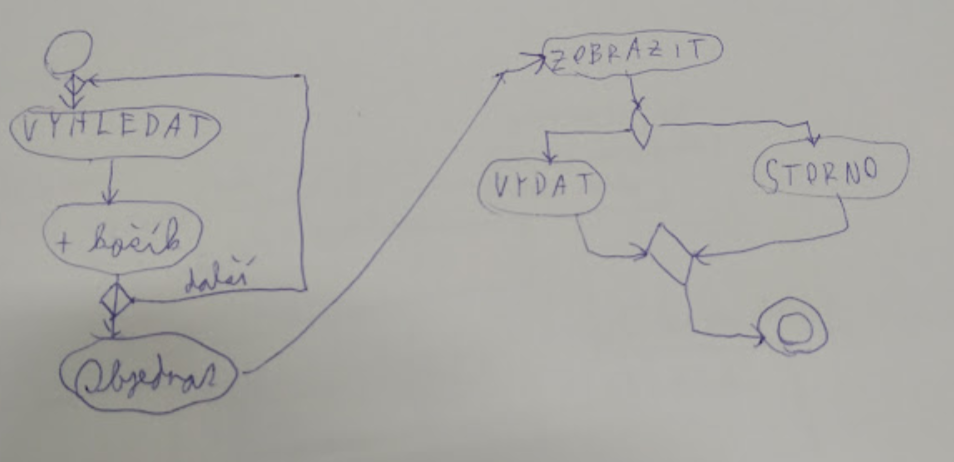 VYHLEDAT
+ košík
další
Objednat
ZOBRAZIT
VYDAT
STORNO